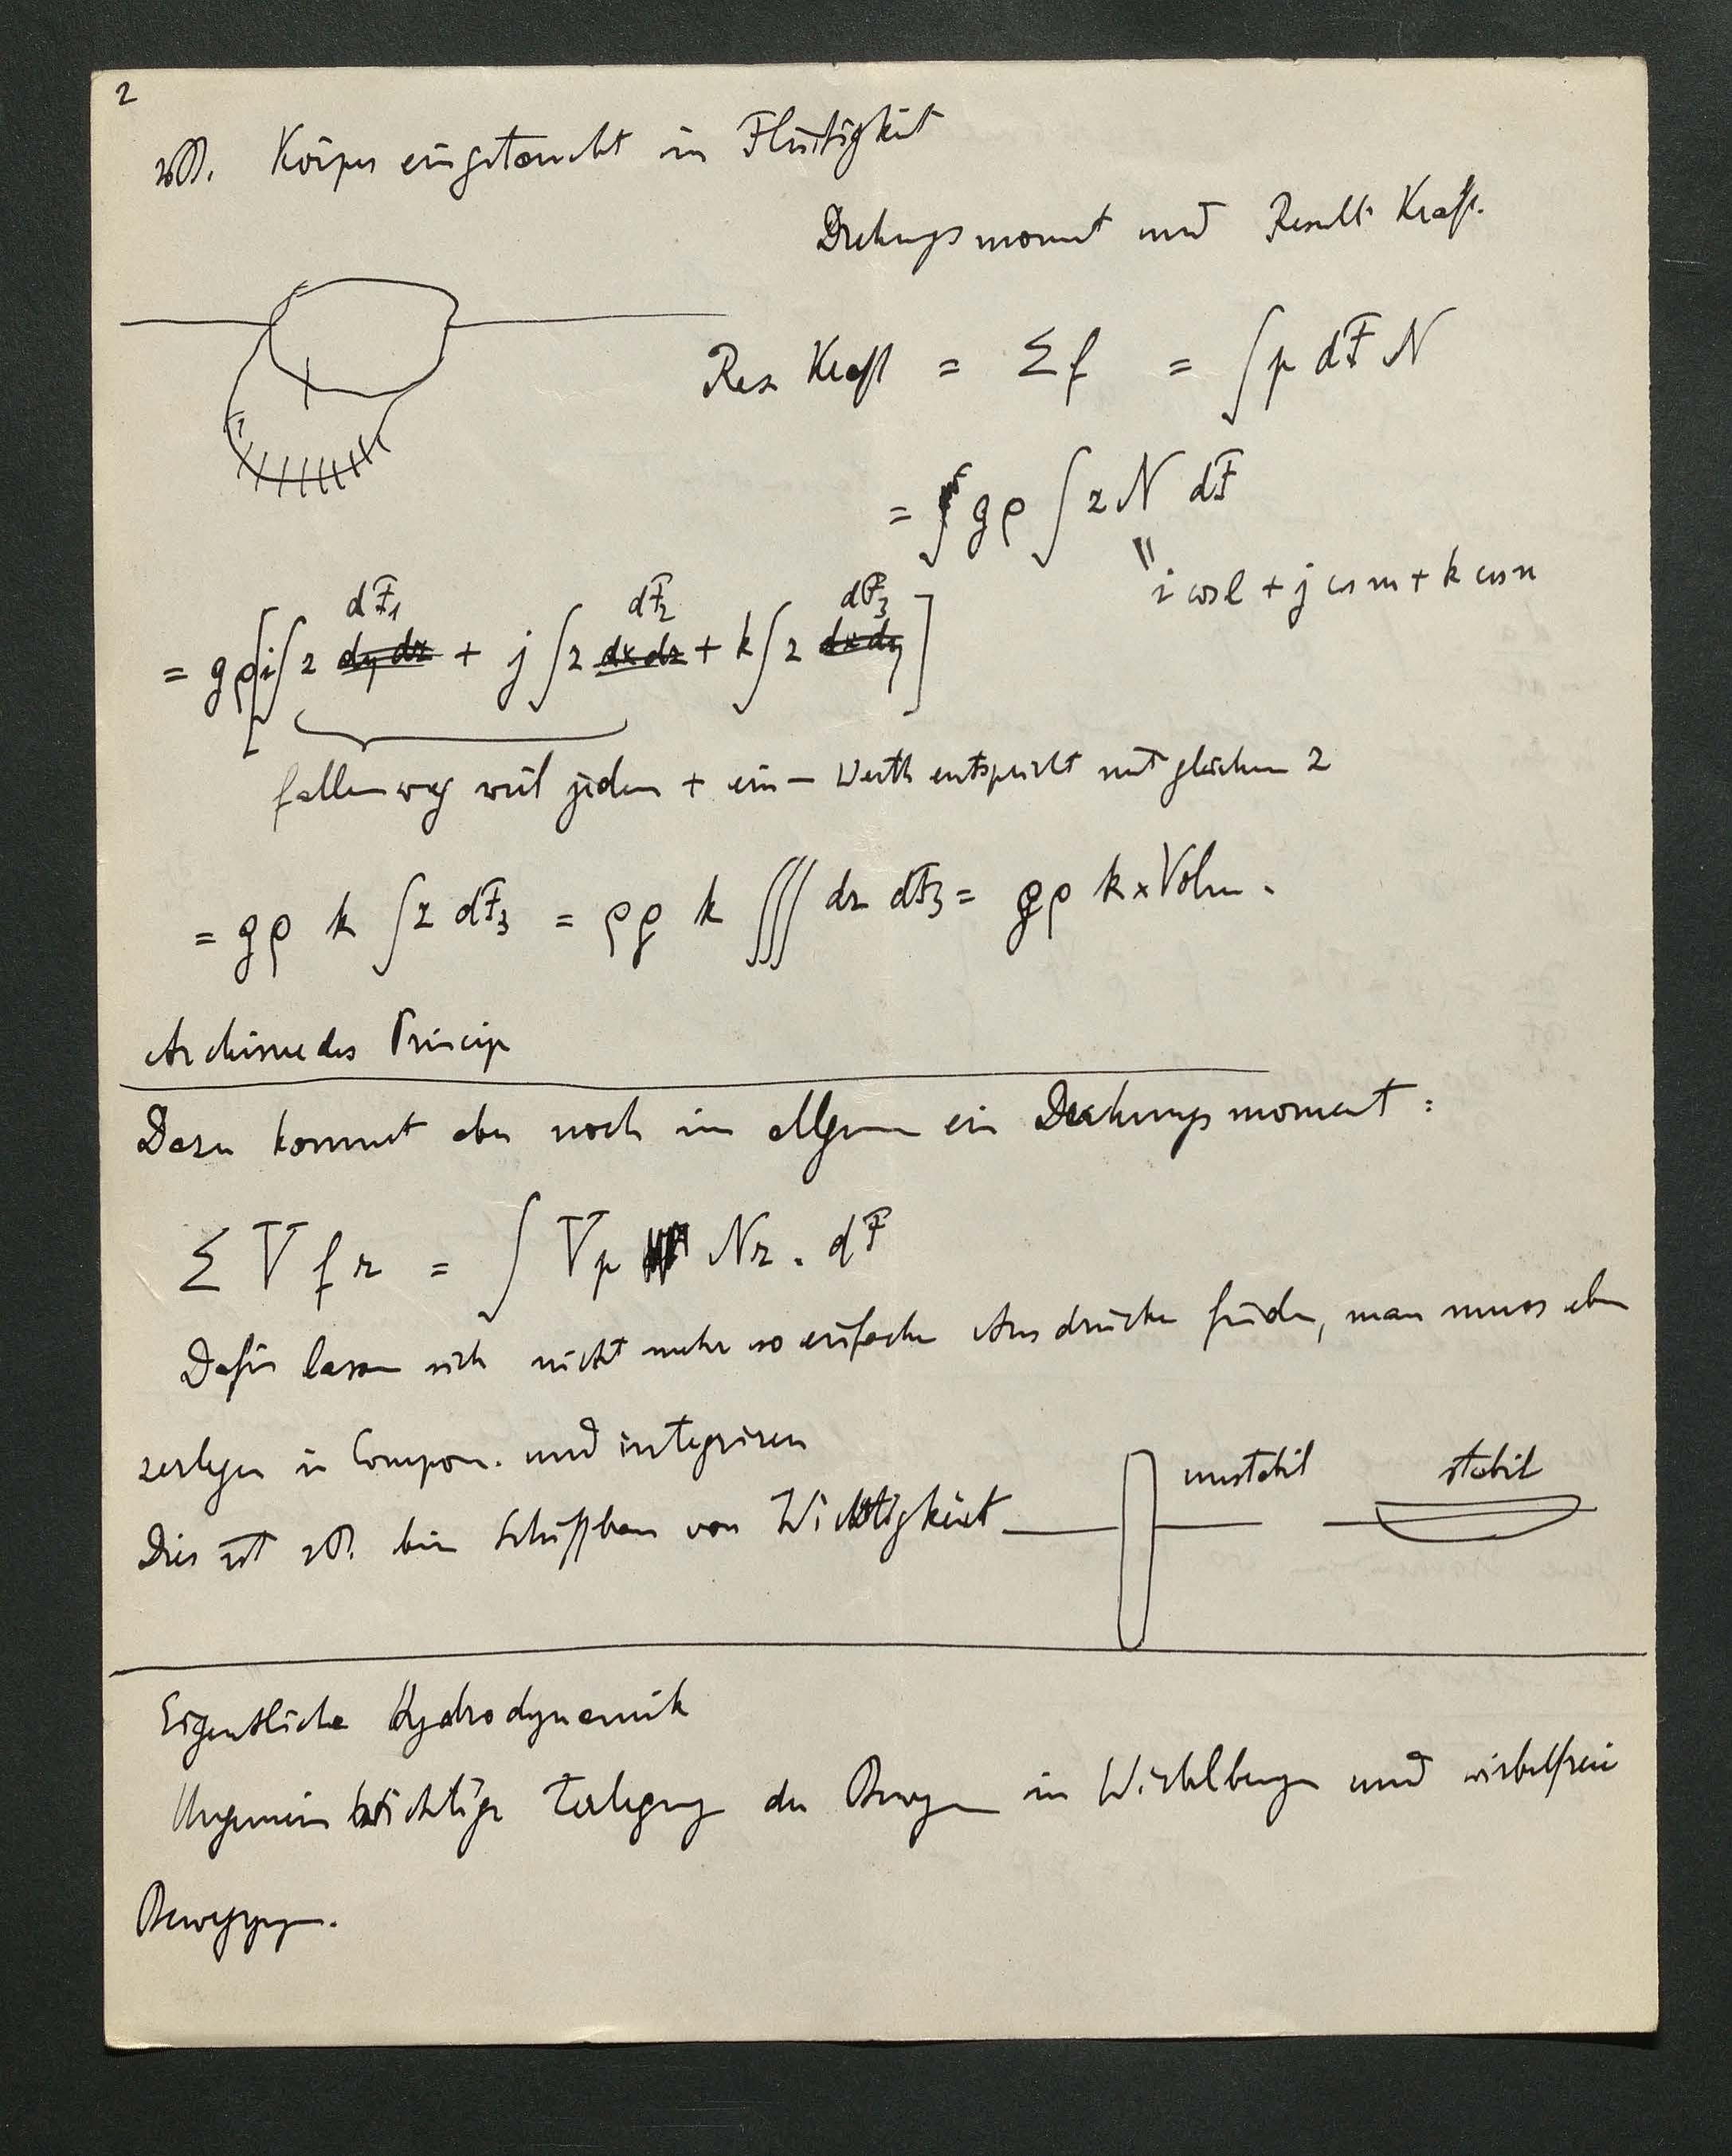 2
zB. Körper eingetaucht in Flüssigkeit
Drehungsmoment und Result. Kraft.
Res Kraft = Σ f = ∫ p dF N
= gρ ∫ z N dF
" i cos l + j cos m + k cos n
dF₁ dF₂ dF₃
= gρ [i ∫ z dy dz + j ∫ z dx dz + k ∫ z dx dy]
fallen weg weil jedem + ein – Werth entspricht mit gleichem z
= gρ k ∫ z dF₃ = ρg k ∫∫∫ dz dF₃ = gρ k × Volum.
Archimedes Princip
Dazu kommt aber noch im allgem ein Drehungsmoment:
Σ V f r = ∫ V p N r . dF
Dafür lassen sich nicht mehr so einfache Ausdrücke finden, man muss eben
zerlegen in Compon. und integriren
Dies ist zB. beim Schiffbau von Wichtigkeit
unstabil stabil
Eigentliche Hydrodynamik
Ungemein wichtige Zerlegung der Bewgen in Wirbelbewgen und wirbelfreie
Bewegungen.